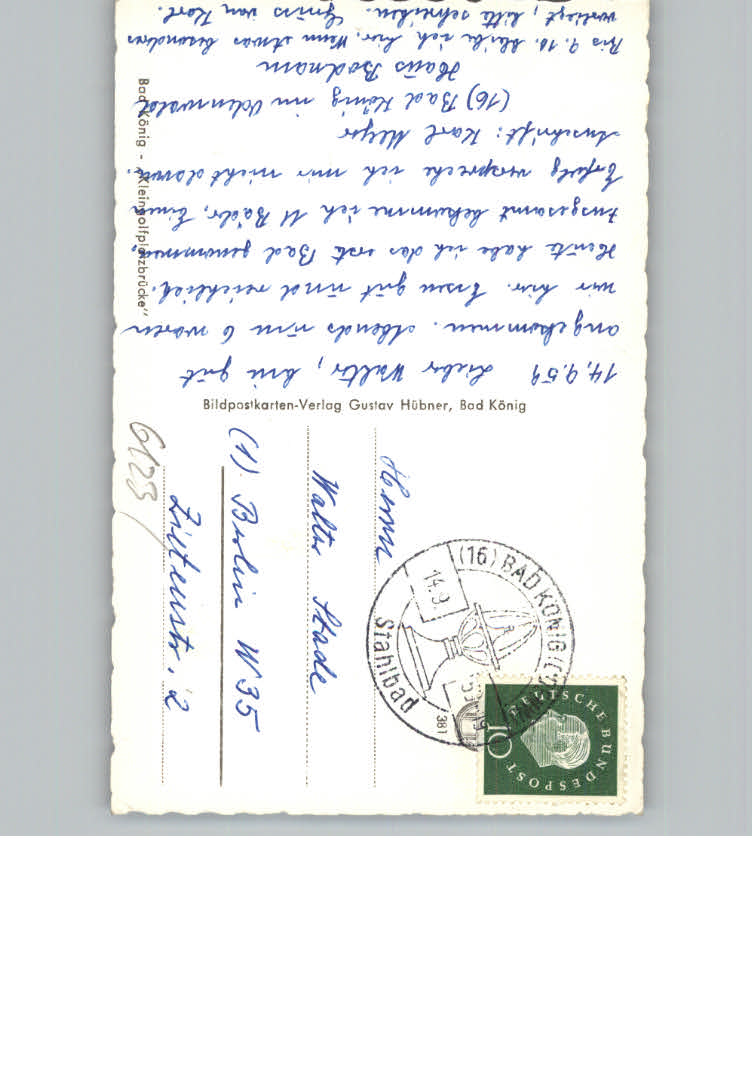 14.9.59 Lieber Walter, bin gut
angekommen. Abends um 6 waren
wir hier. Essen gut und reichlich.
Heute habe ich das erste Bad genommen.
Insgesamt bekomme ich 11 Bäder. Einen
Erfolg verspreche ich mir nicht davon.
Anschrift: Karl Meyer
(16) Bad König im Odenwald
Haus Bodmann
Bis 9.10. bleibe ich hier. Wenn etwas besonders
vorliegt, bitte schreiben. Gruss von Karl.
Bad König - "Kleingolfplatzbrücke"
Bildpostkarten-Verlag Gustav Hübner, Bad König
Herrn
Walter Stade
(1) Berlin W 35
Zietenstr. 2
6123
(16) BAD KÖNIG
14.9.
Stahlbad
381
DEUTSCHE BUNDESPOST
10